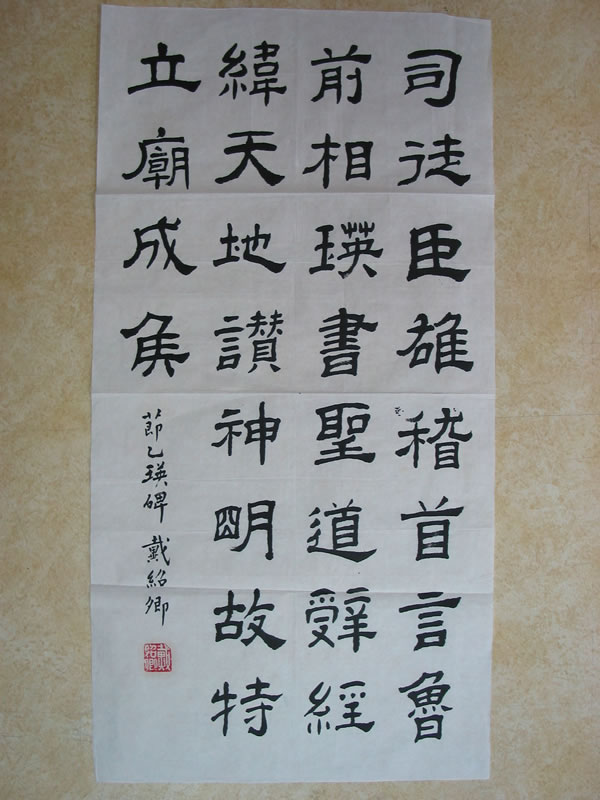 司徒臣雄稽首言魯
前相瑛書聖道辭經
緯天地讚神明故特
立廟成侯
節乙瑛碑 戴紹卿